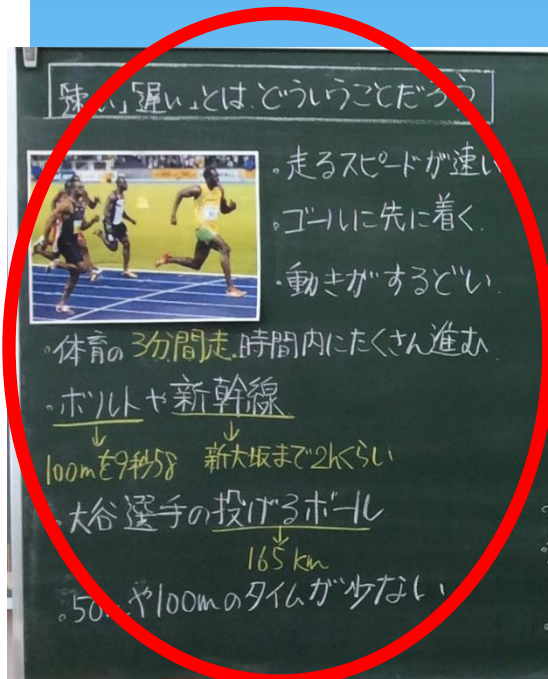 「速い」「遅い」とは、どういうことだろう
・走るスピードが速い
・ゴールに先に着く
・動きがするどい
・体育の3分間走.時間内にたくさん進む
・ボルトや新幹線
↓ ↓
100mを9秒58 新大阪まで2hくらい
・大谷選手の投げるボール
↓
165km
・50mや100mのタイムが少ない